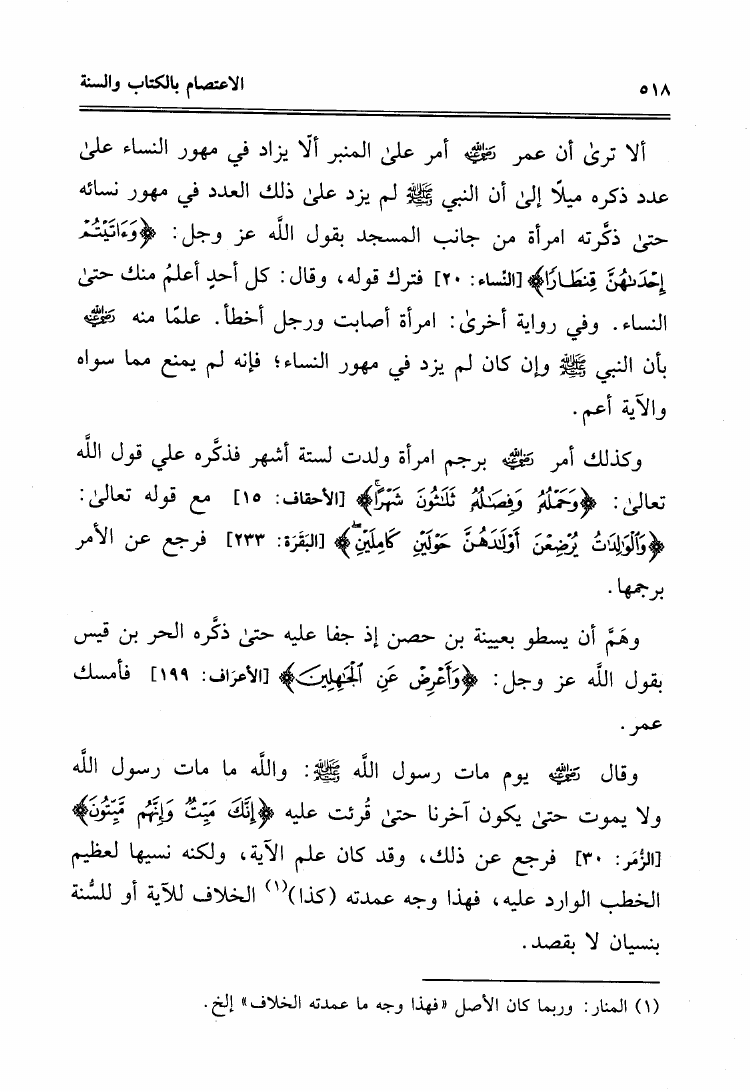 ٥١٨ الاعتصام بالكتاب والسنة
ألا ترىٰ أن عمر رضي الله عنه أمر علىٰ المنبر ألّا يزاد في مهور النساء علىٰ
عدد ذكره ميلًا إلىٰ أن النبي ﷺ لم يزد علىٰ ذلك العدد في مهور نسائه
حتىٰ ذكَّرته امرأة من جانب المسجد بقول اللَّه عز وجل: ﴿وَءَاتَيْتُمْ
إِحْدَىٰهُنَّ قِنطَارًا﴾ [النِّساء: ٢٠] فترك قوله، وقال: كل أحدٍ أعلمُ منك حتىٰ
النساء. وفي رواية أخرىٰ: امرأة أصابت ورجل أخطأ. علمًا منه رضي الله عنه
بأن النبي ﷺ وإن كان لم يزد في مهور النساء؛ فإنه لم يمنع مما سواه
والآية أعم.
وكذلك أمر رضي الله عنه برجم امرأة ولدت لستة أشهر فذكَّره علي قول اللَّه
تعالىٰ: ﴿وَحَمْلُهُۥ وَفِصَٰلُهُۥ ثَلَٰثُونَ شَهْرًا﴾ [الأحقاف: ١٥] مع قوله تعالىٰ:
﴿وَٱلْوَٰلِدَٰتُ يُرْضِعْنَ أَوْلَٰدَهُنَّ حَوْلَيْنِ كَامِلَيْنِۖ﴾ [البَقَرَة: ٢٣٣] فرجع عن الأمر
برجمها.
وهَمَّ أن يسطو بعيينة بن حصن إذ جفا عليه حتىٰ ذكَّره الحر بن قيس
بقول اللَّه عز وجل: ﴿وَأَعْرِضْ عَنِ ٱلْجَٰهِلِينَ﴾ [الأعرَاف: ١٩٩] فأمسك
عمر.
وقال رضي الله عنه يوم مات رسول اللَّه ﷺ: واللَّه ما مات رسول اللَّه
ولا يموت حتىٰ يكون آخرنا حتىٰ قُرئت عليه ﴿إِنَّكَ مَيِّتٌ وَإِنَّهُم مَّيِّتُونَ﴾
[الزُّمَر: ٣٠] فرجع عن ذلك، وقد كان علم الآية، ولكنه نسيها لعظيم
الخطب الوارد عليه، فهذا وجه عمدته (كذا)(١) الخلاف للآية أو للسُّنة
بنسيان لا بقصد.
(١) المنار: وربما كان الأصل «فهذا وجه ما عمدته الخلاف» إلخ.